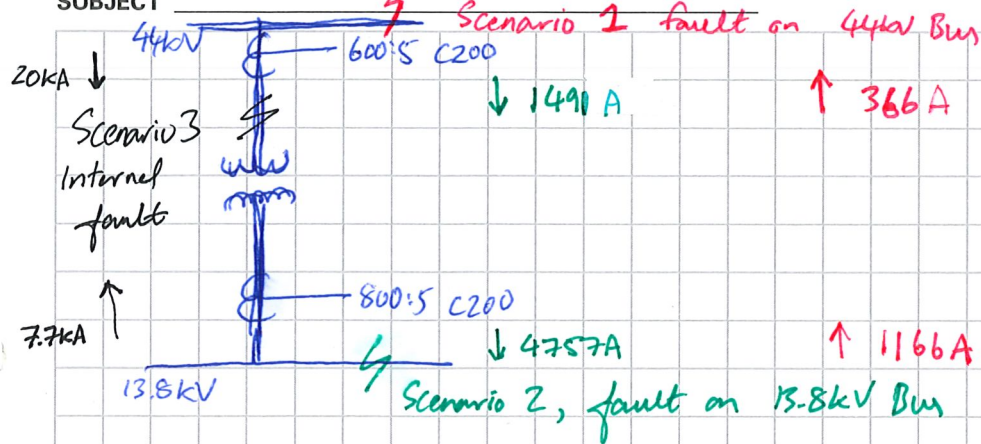 SUBJECT
Scenario 1 fault on 44kV Bus
44kV
600:5 C200
20kA
1491 A
366 A
Scenario 3
Internal
fault
800:5 C200
7.7kA
4757A
1166A
13.8kV
Scenario 2, fault on 13.8kV Bus